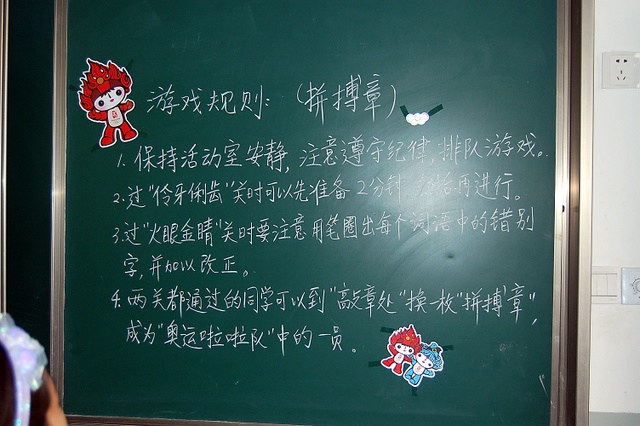 游戏规则:(拼搏章)
1.保持活动室安静,注意遵守纪律,排队游戏。
2.过"伶牙俐齿"关时可以先准备2分钟,再进行。
3.过"火眼金睛"关时要注意用笔圈出每个词语中的错别
字,并加以改正。
4.两关都通过的同学可以到"敲章处"换一枚"拼搏章",
成为"奥运啦啦队"中的一员。